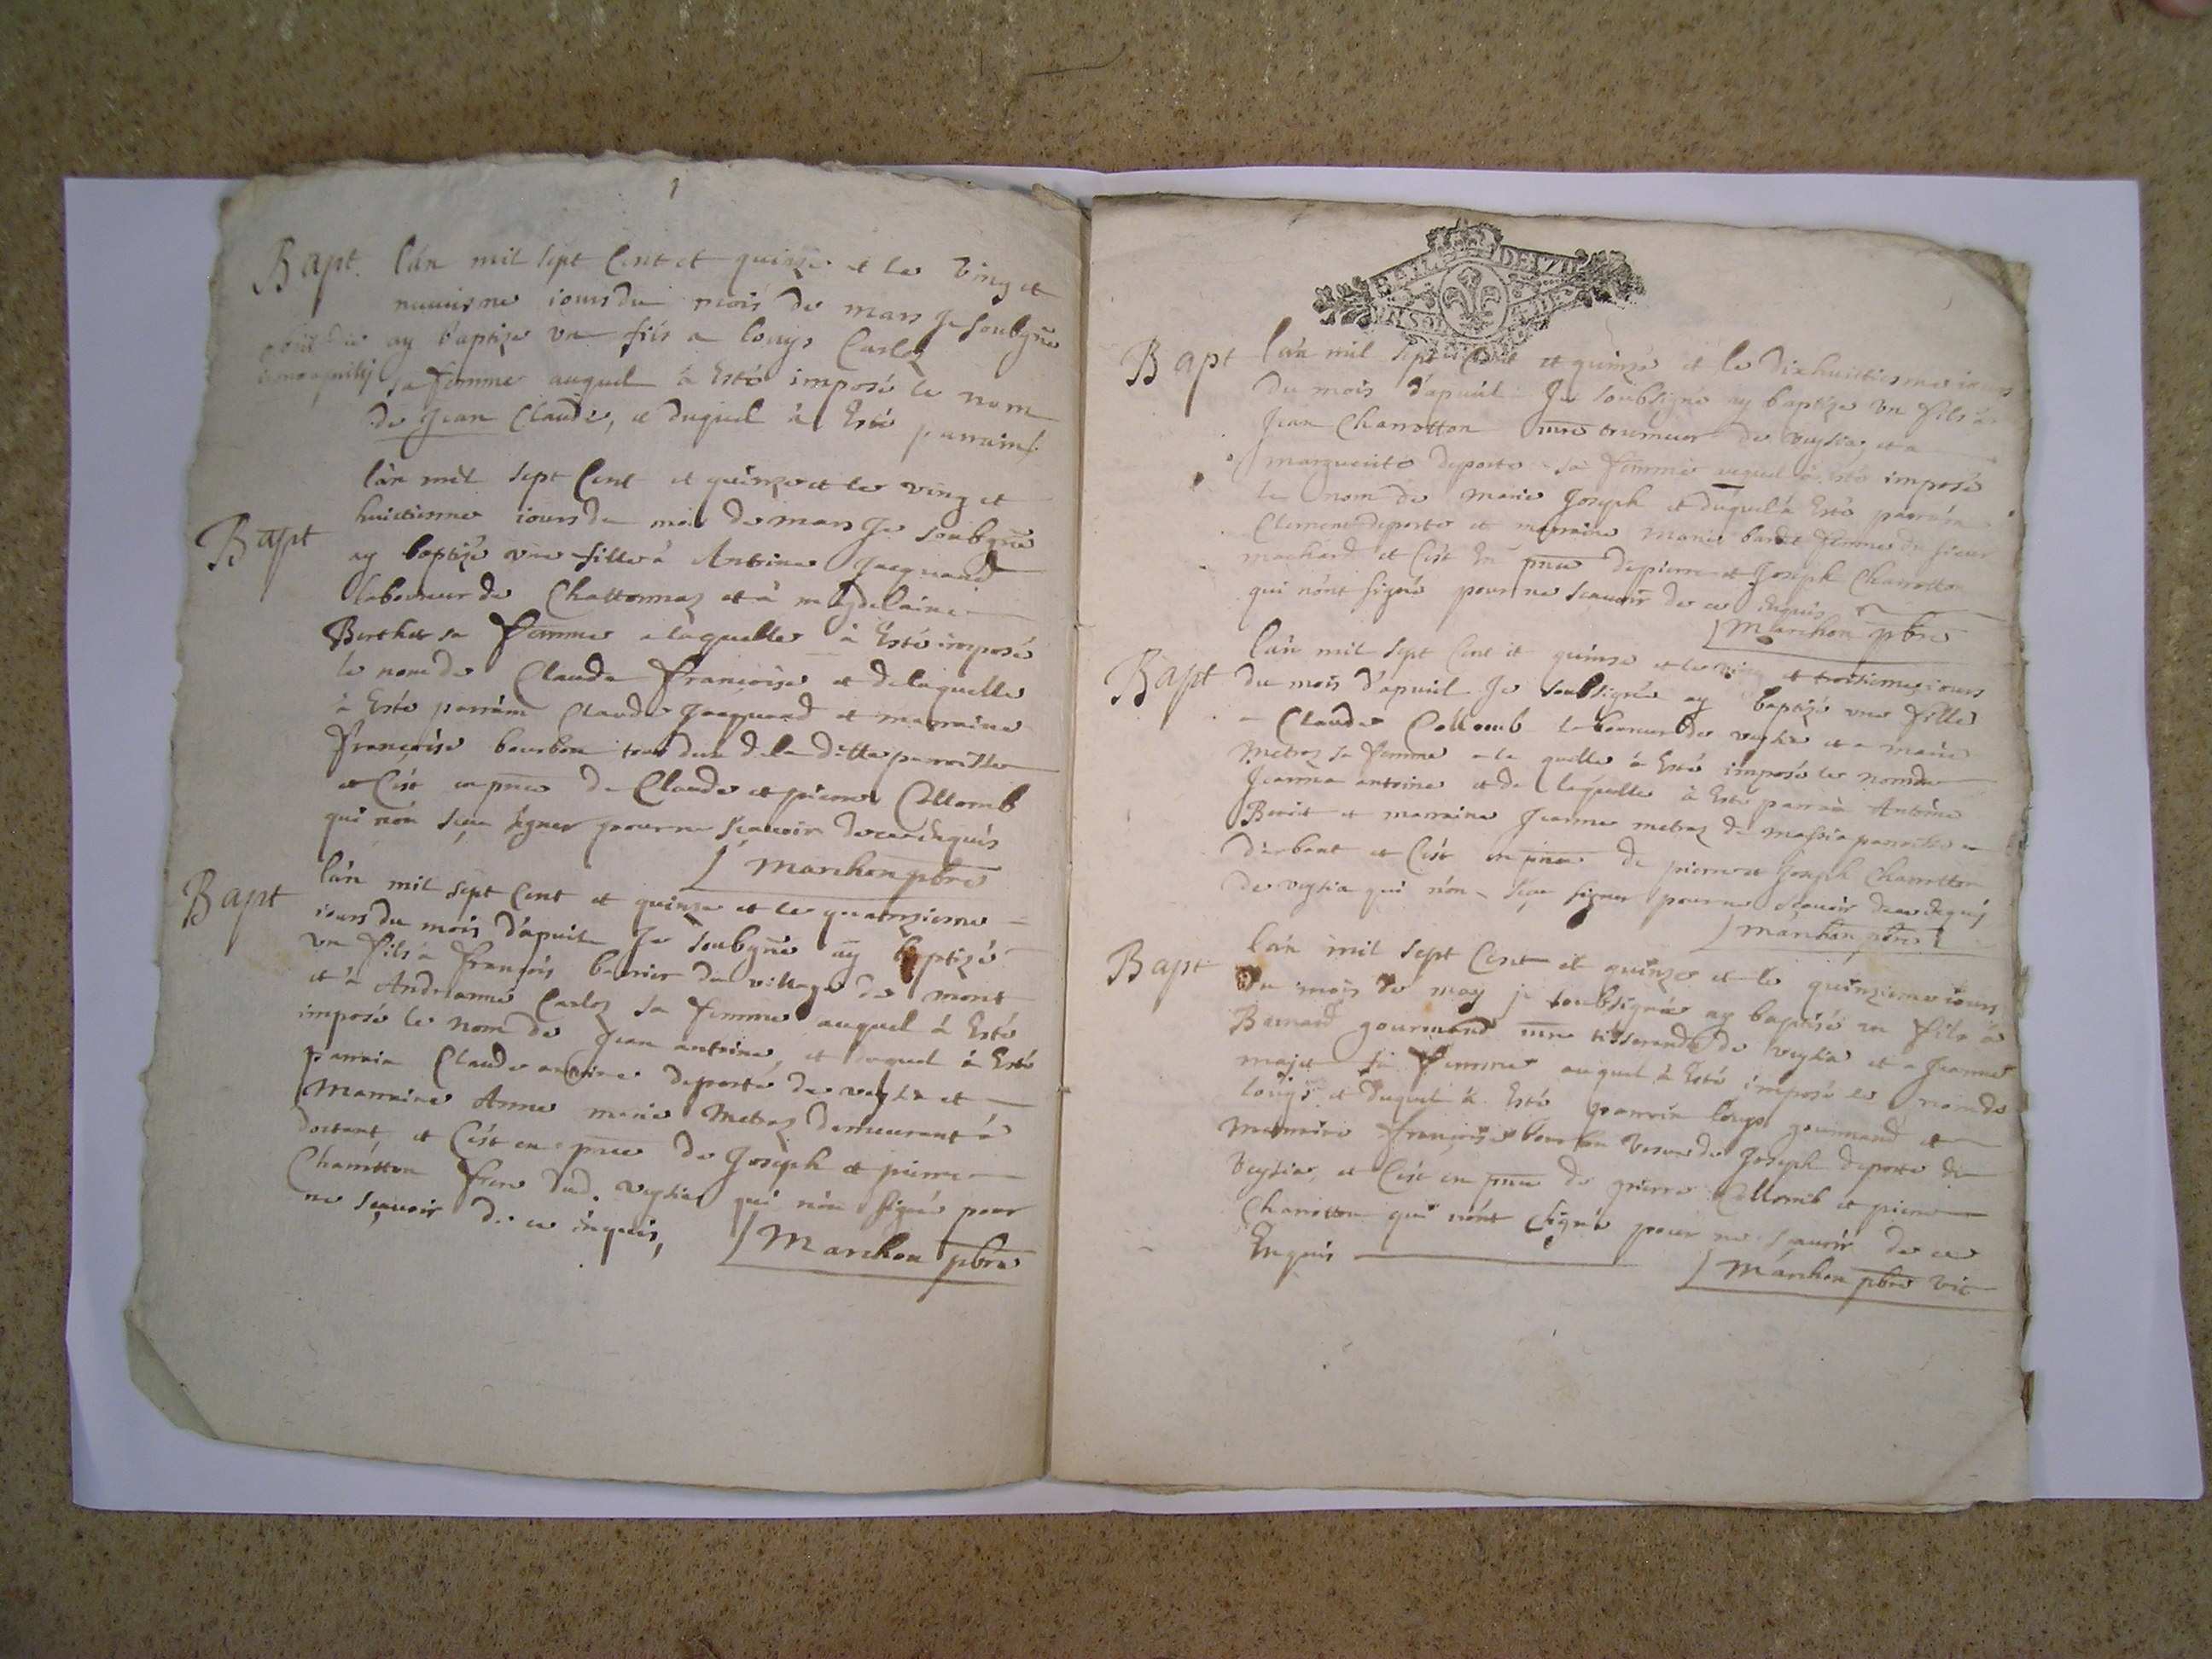 1
Bapt. l'an mil sept Cent et quinze et le ving et
neuuisme iours du mois de mars Je soubgne
ay baptize un fils a louys Carloz
sa femme auquel à Esté imposé le nom
de Jean Claude, et duquel à Esté parrain
l'an mil sept Cent et quinze et le ving et
Bapt huictiesme iours du mois de mars Je soubgne
ay baptizé une fille à Antoine Jacquand
laboureur de Chattonnaz et à magdelaine
Berthet sa femme a laquelle à Esté imposé
le nom de Claude françoise et de laquelle
à Esté parrain Claude Jacquand et marraine
françoise bourbon tous deux de la ditte parroisse
et C'est en pnce de Claude et pierre Collomb
qui n'on sceu signer pour ne scauoir de ce Enquis
Marchon pbre
Bapt l'an mil sept Cent et quinze et le quatorzieme
iours du mois d'apuril Je soubgne ay baptizé
un fils à françois barrier du village de mont
et à Andreanne Carloz sa femme auquel à Esté
imposé le nom de Jean antoine, et duquel à Esté
parrain Claude antoine deporte de veysia et
Marraine Anne marie Metraz demeurant à
dortant, et C'est en pnce de Joseph et pierre
Charrotton frere dud. veysia qui n'on signé pour
ne sçauoir de ce enquis, Marchon pbre
Bapt l'an mil sept Cent et quinze et le dixhuictiesme iours
du mois d'apuril Je soubsigne ay baptize un fils à
Jean Charrotton de veysia, et a
marguerite deporte sa femme auquel à Esté imposé
le nom de marie Joseph et duquel à Esté parrain
Clement deporte et marraine marie femme du sieur
machard et C'est En pnce de pierre et Joseph Charrotton
qui n'ont signé pour ne scauoir de ce enquis
Marchon pbre
l'an mil sept Cent et quinze et le ving et troisiemes iours
Bapt du mois d'apuril Je soubsigné ay baptizé une fille
a Claude Collomb laboureur de veysia et a marie
Metraz sa femme a la quelle à Esté imposé le nom de
Jeanne antoine et de laquelle à Esté parrain Antoine
Benoit et marraine Jeanne metraz de massia parroisse
d'arbent et C'est en pnce de pierre et Joseph Charrotton
de veysia qui n'on sçeu signer pour ne scauoir de ce Enquis
Marchon pbre
Bapt l'an mil sept Cent et quinze et le quinzieme iours
du mois de may je soubsigné ay baptisé un fils à
Bernard gourmand mre tisserand de veysia et a Jeanne
majet sa femme auquel à Esté imposé le nom de
louys et duquel à Esté parrain louys gourmand et
marraine françoise bourbon vesue de Joseph deporte de
veysia, et C'est en pnce de pierre Collomb et pierre
Charrotton qui n'ont signé pour ne scauoir de ce
Enquis
Marchon pbre vic